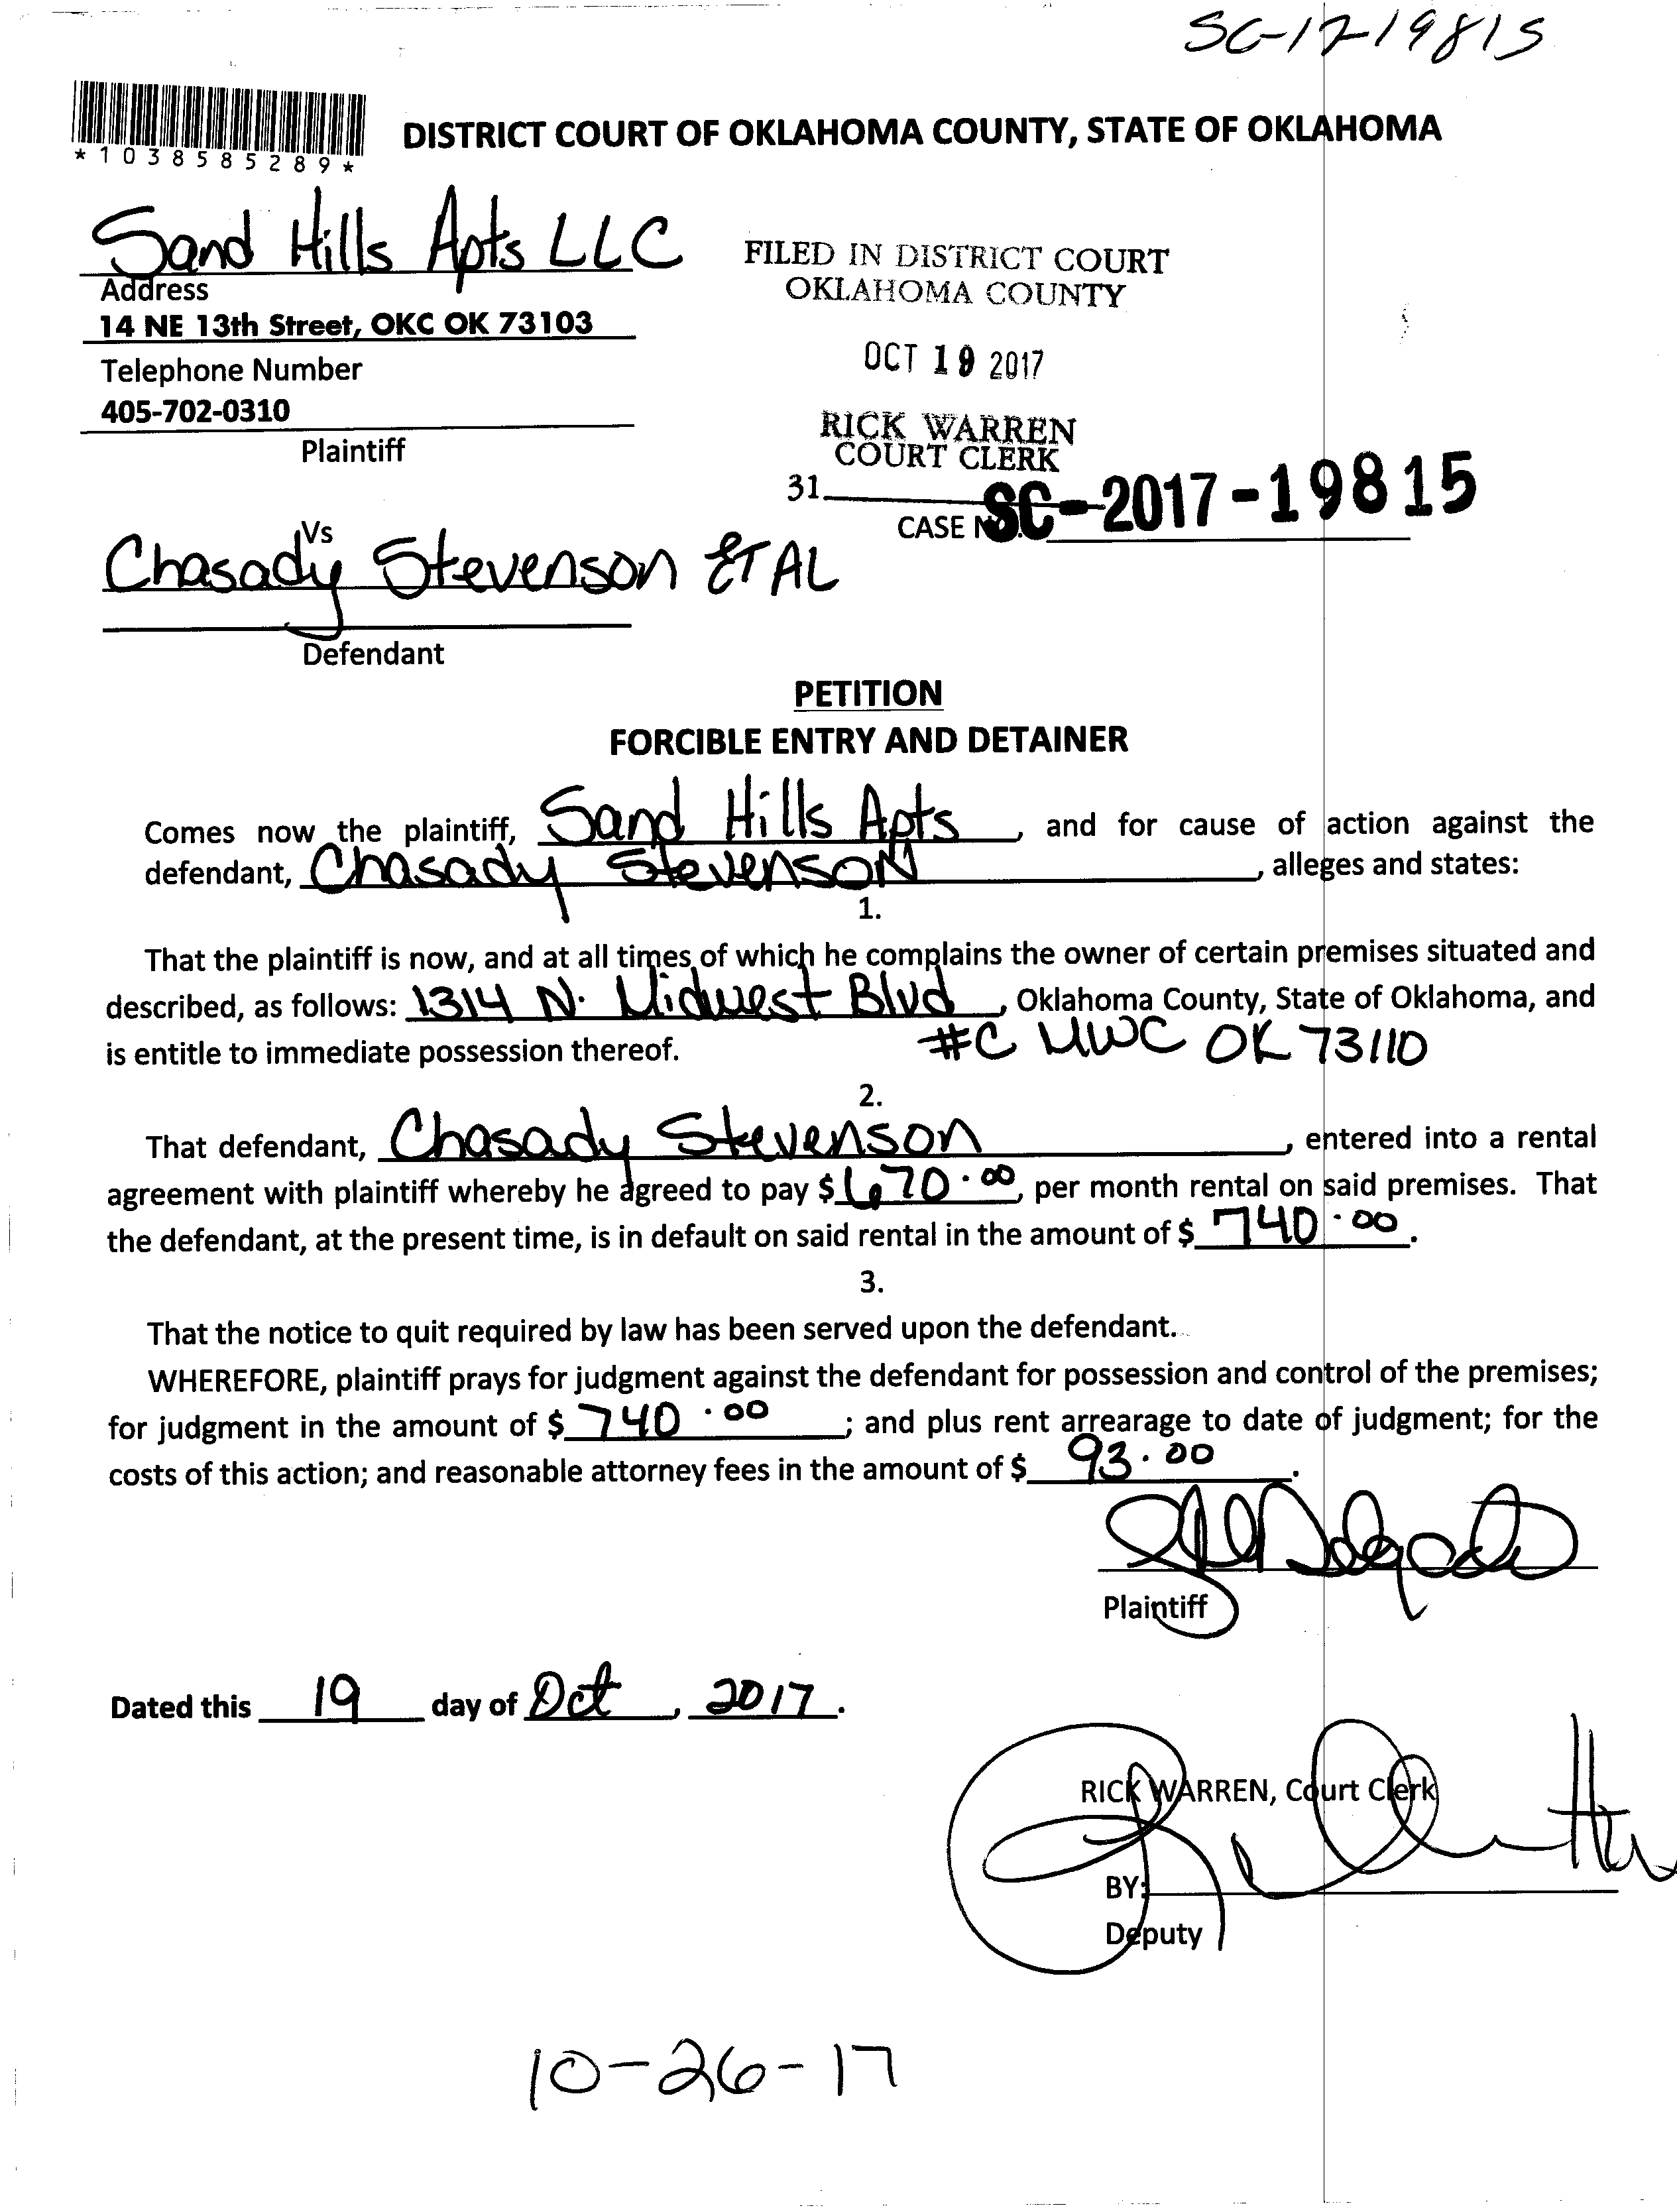 SC-17-19815
*1038585289*
DISTRICT COURT OF OKLAHOMA COUNTY, STATE OF OKLAHOMA
Sand Hills Apts LLC
Address
14 NE 13th Street, OKC OK 73103
Telephone Number
405-702-0310
Plaintiff
FILED IN DISTRICT COURT
OKLAHOMA COUNTY
OCT 19 2017
RICK WARREN
COURT CLERK
31
CASE N SC-2017-19815
Vs
Chasady Stevenson ETAL
Defendant
PETITION
FORCIBLE ENTRY AND DETAINER
Comes now the plaintiff, Sand Hills Apts, and for cause of action against the
defendant, Chasady Stevenson, alleges and states:
1.
That the plaintiff is now, and at all times of which he complains the owner of certain premises situated and
described, as follows: 1314 N. Midwest Blvd, Oklahoma County, State of Oklahoma, and
is entitle to immediate possession thereof. #C MWC OK 73110
2.
That defendant, Chasady Stevenson, entered into a rental
agreement with plaintiff whereby he agreed to pay $ 670.00, per month rental on said premises. That
the defendant, at the present time, is in default on said rental in the amount of $ 740.00.
3.
That the notice to quit required by law has been served upon the defendant.
WHEREFORE, plaintiff prays for judgment against the defendant for possession and control of the premises;
for judgment in the amount of $ 740.00; and plus rent arrearage to date of judgment; for the
costs of this action; and reasonable attorney fees in the amount of $ 93.00.
Plaintiff
Dated this 19 day of Oct, 2017.
RICK WARREN, Court Clerk
BY:
Deputy
10-26-17